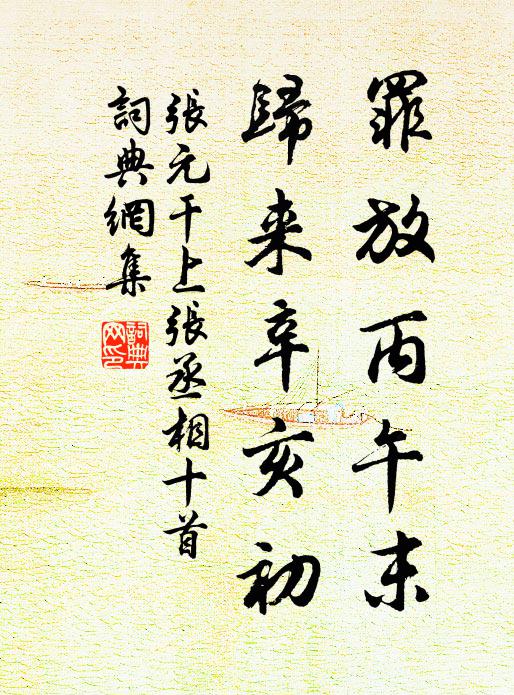 罪放丙午末
歸来辛亥初
張元干上張丞相十首
詞典網集
詞典网印